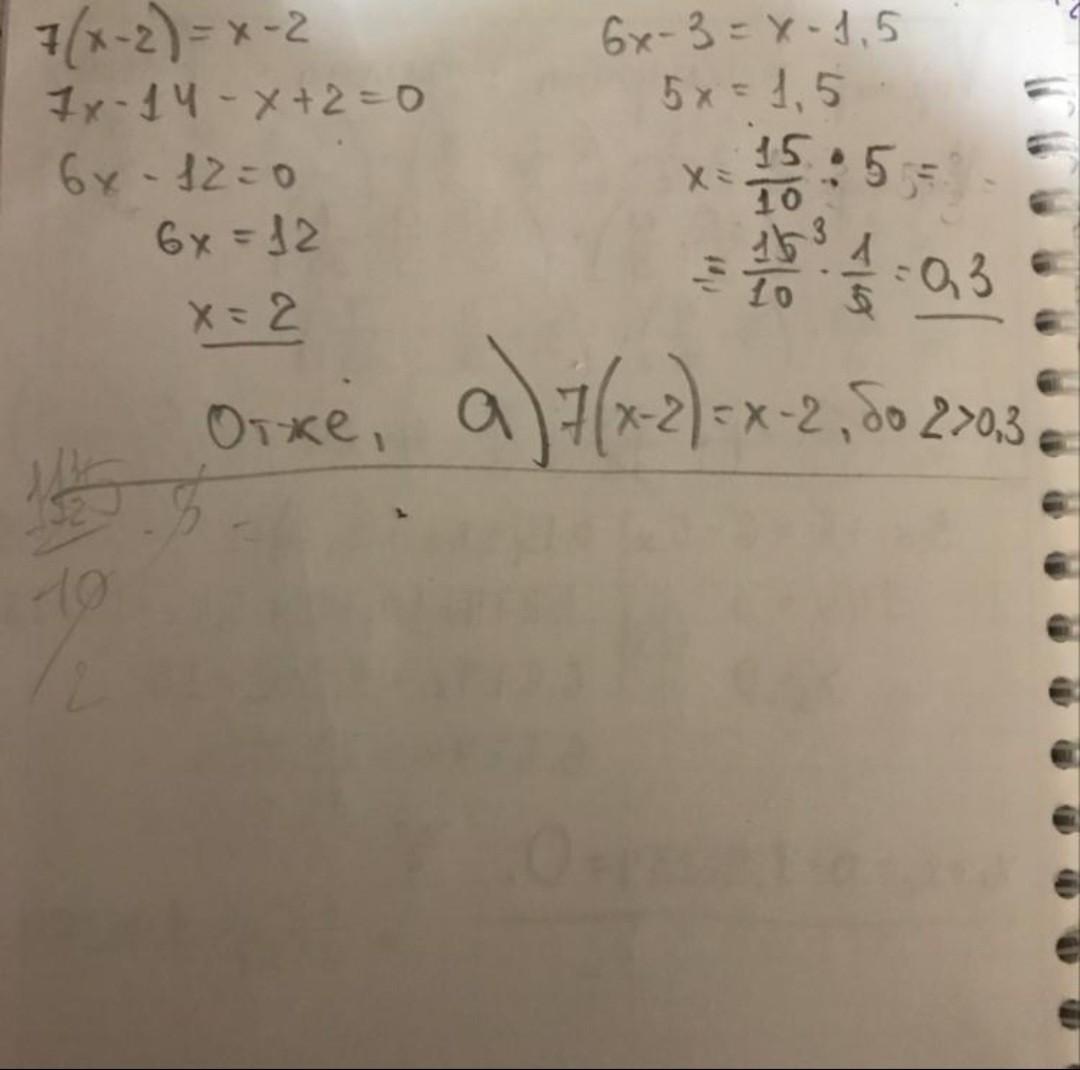 7(x-2)=x-2
7x-14-x+2=0
6x-12=0
6x=12
x=2
6x-3=x-1,5
5x=1,5
x=15/10:5=
=15/10·1/5=0,3
Отже, а) 7(x-2)=x-2, бо 2>0,3